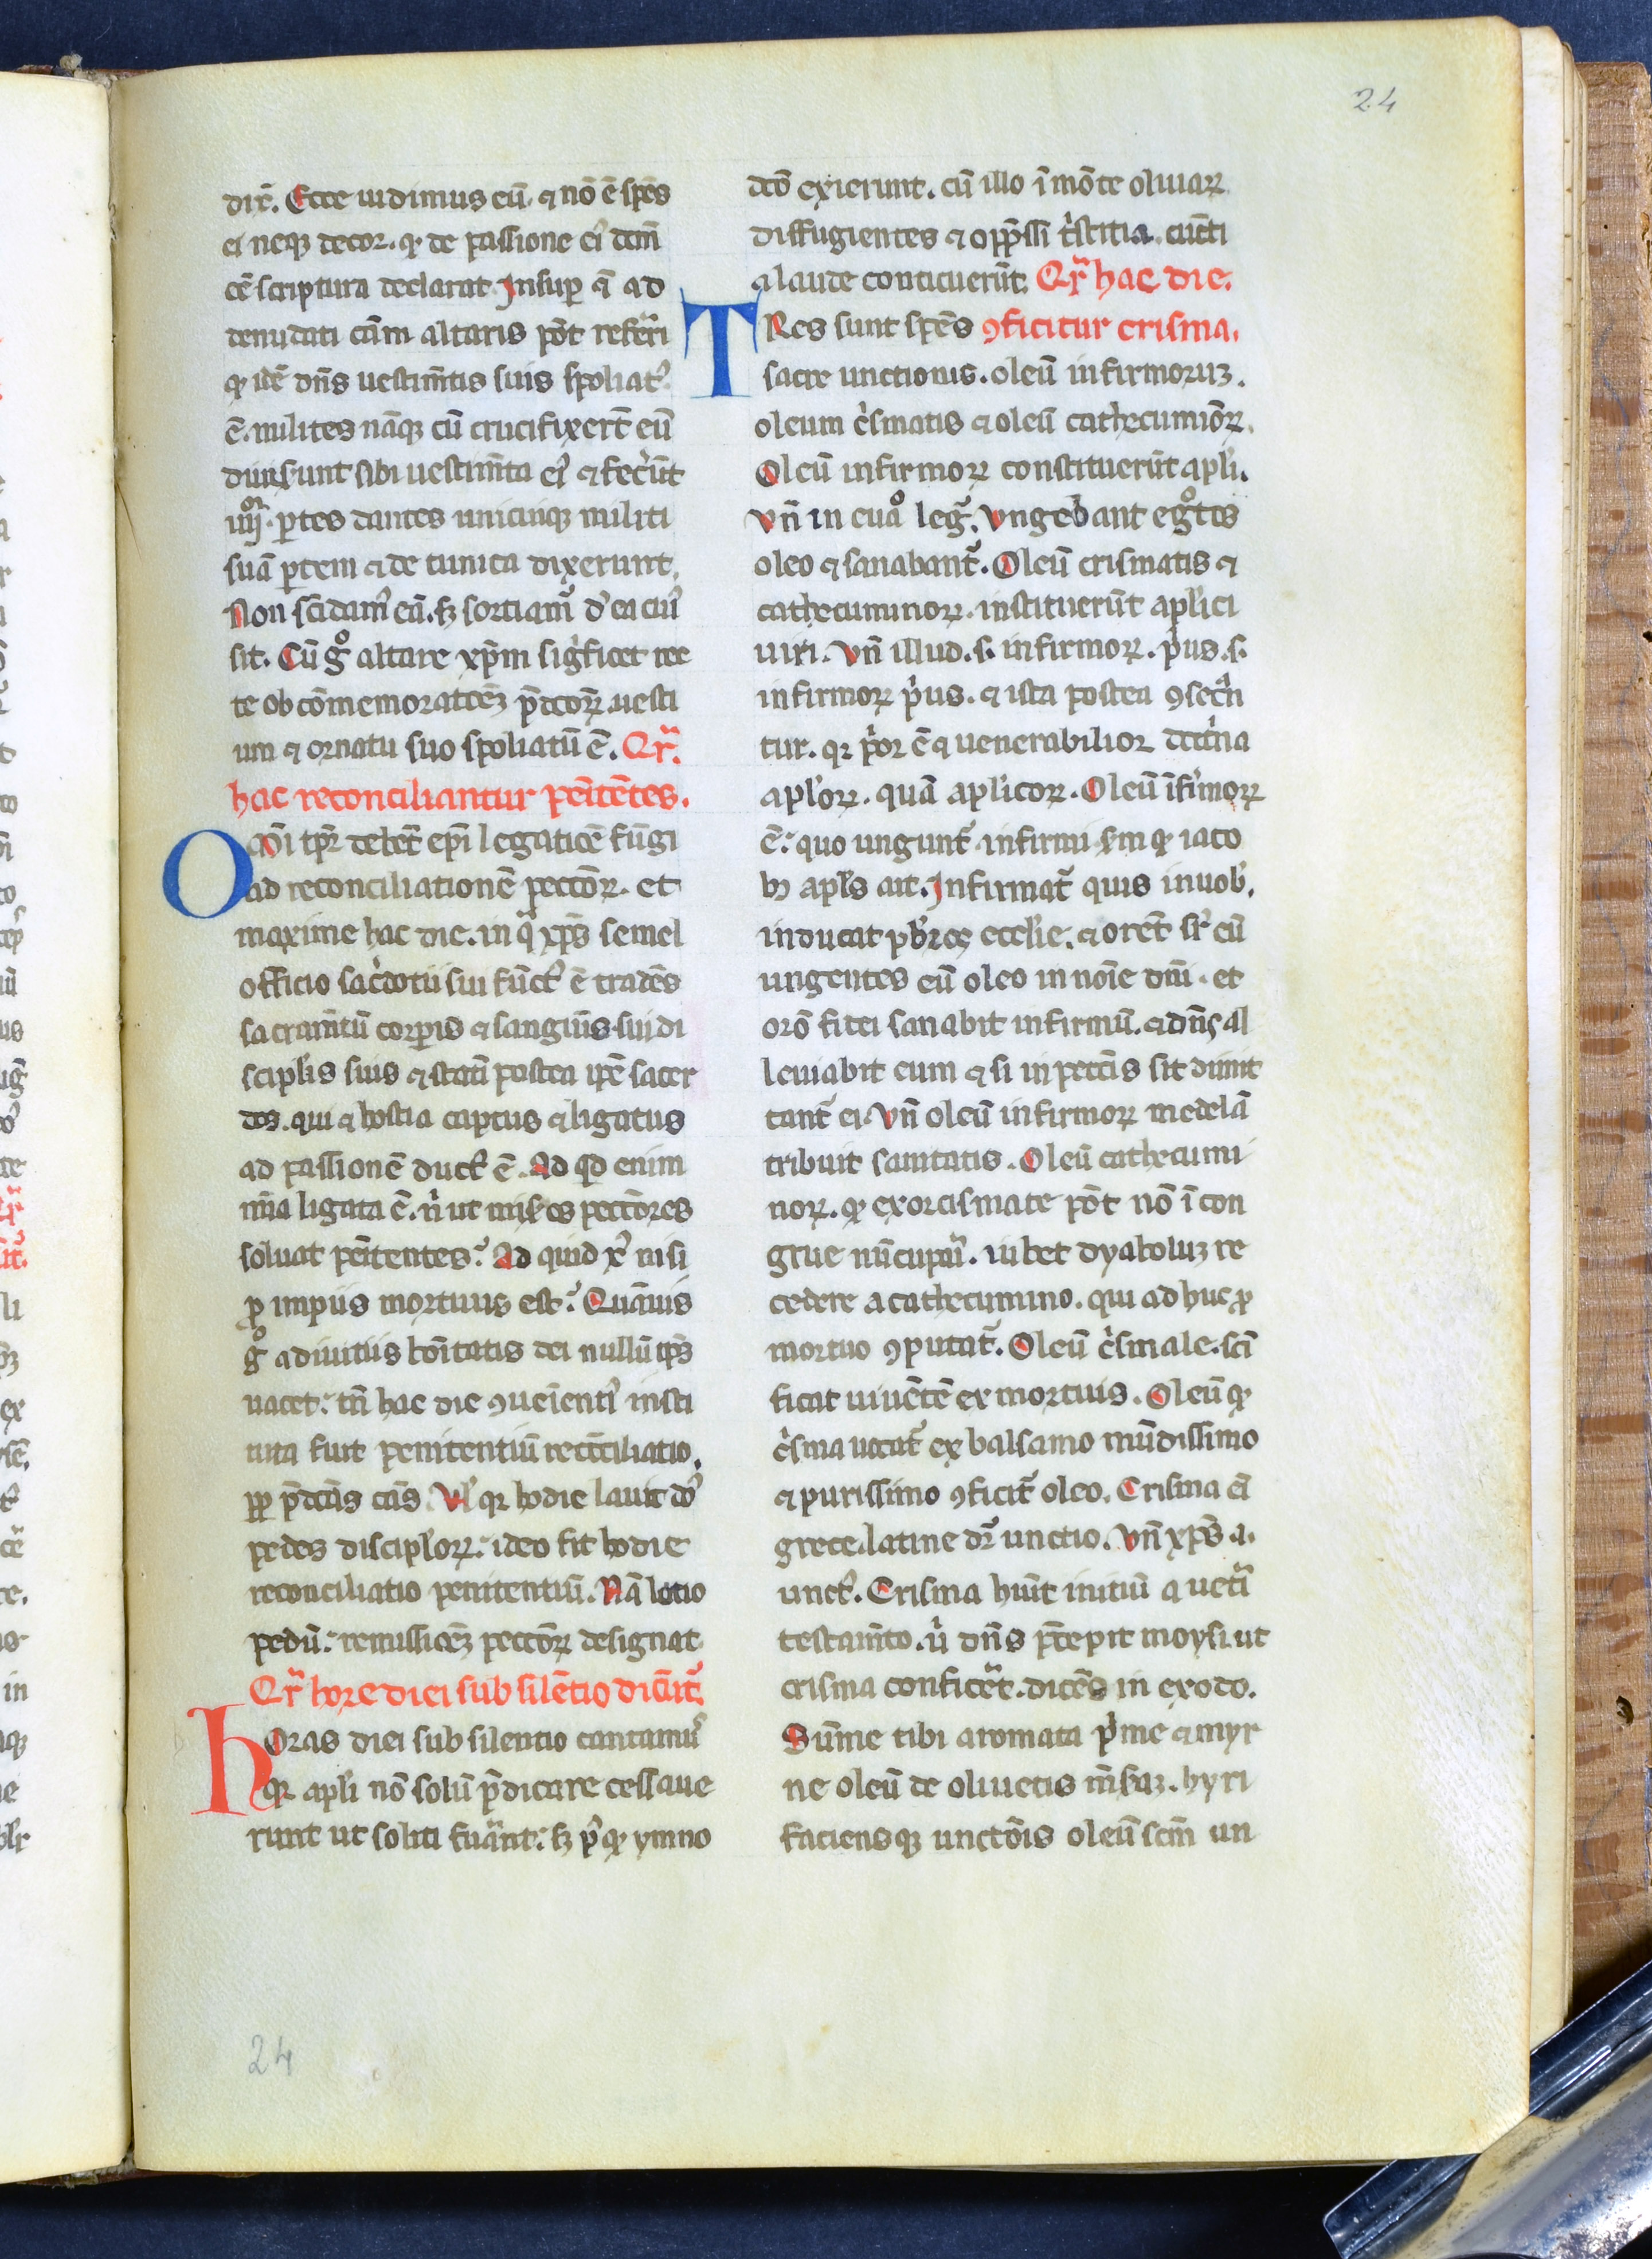 24
dix̄. Ecce uidimus eū. ⁊ nō ē sp̄es
ei neqꝫ decor. qͥ de passione eiꝰ dem̄
cē scriptura declarat Insuꝑ ā ad
denudati cām altaris pōt referri
qͥ idē dn̄s uestim̄tis suis spoliatꝰ
ē. milites nāqꝫ cū crucifixert̄ eū
diuiserunt sibi uestim̄ta eiꝰ ⁊ fecer̄t
iiij. ꝑtes dantes unicuiqꝫ militi
suā ꝑtem ⁊ de tunica dixerunt,
Non scīdamꝰ eā. sꝫ sortiamꝰ dͤ ea cuiꝰ
sit. Cū gͦ altare xp̄m sigͥficet rec
te ob cōmemoratōeꝫ p̄dcōꝝ uesti
um ⁊ ornatu suo spoliatū ē. Qr̄
hac reconciliantur penitētes.
OMni tp̄r debet̄ ep̄i legatiōē fūgi
ad reconciliationē peccōꝝ. et
maxime hac die. in qͣ xp̄s semel
officio sac̓dotii sui fūctꝰ ē tradēs
sacram̄tū corꝑis ⁊ sanguīs sui di
scipl̄is suis ⁊ statī postea ip̄e sacer
dos. qui ⁊ hostia captus ⁊ ligatus
ad passionē ductꝰ ē. Ad qd̄ enim
mīa ligata ē. nͥ ut miseros peccōres
soluat penitentes? Ad quid xꝰ nisi
ꝓ impiis mortuus est? Quāuis
gͦ a diuitiis bōitatis dei nullū tp̄s
uacet: tn̄ hac die ꝯueīentiꝰ insti
tuta fuit penitentiū recōciliatio,
ꝓp p̄dcās cās. Vl̓ qꝛ hodie lauit dn̄s
pedes discipl̓oꝝ: ideo fit hodie
reconciliatio penitentiū. Nā lotio
pedū: remissiōeꝫ peccōꝝ designat
Qr̄ hore diei sub silētio dicūt̄
HOras diei sub silentio cantamꝰ
qꝛ apl̓i nō solū p̄dicare cessaue
runt ut soliti fuāt: sꝫ pꝰqͥ ymno
dcō exierunt. cū illo ī mōte oliuaꝝ
diffugientes ⁊ opp̄ssi tͥstitia. cūcti
a laude conticuerūt. Qr̄ hac die.
TRes sunt sp̄es ꝯficitur crisma.
sacre unctionis. oleū infirmoruꝫ.
oleum cͥsmatis ⁊ oleū cathecumiōꝝ.
Oleū infirmoꝝ constituerūt apl̓i.
Vn̄ in euāº leg̃. Vngebant egͦtos
oleo ⁊ sanabant̃. Oleū crismatis ⁊
cathecuminoꝝ. instituerūt apl̓ici
uiri. Vn̄ illud. s. infirmoꝝ. pͥus. s.
infirmoꝝ pͥus. ⁊ ista postea ꝯsecͣn
tur. qꝛ pͥor ē ⁊ uenerabilior doctͥna
apl̓oꝝ. quā apl̓icoꝝ. Oleū īfirmoꝝ
ē: quo ungunt̃ infirmi. sm̄ qͥ iaco
bꝫ apl̓s ait. Infirmat̃ quis in uob̓,
inducat p̄bros eccl̓ie. ⁊ orēt sr̄ eū
ungentes eū oleo in noīe dn̄i. et
orō fidei sanabit infirmū. ⁊ dn̄s al
leuiabit eum ⁊ si in peccīs sit dimit
tant̃ ei. Vn̄ oleū infirmoꝝ medelā
tribuit sanitatis. Oleū cathecumi
noꝝ. qͥ exorcismate pōt nō ī con
grue nūcupari. iubet dyaboluꝫ re
cedere a cathecumino. qui ad huc ꝓ
mortuo ꝯputat̃. Oleū cͥsmale. sci
ficat uiuētē ex mortuis. Oleū qͥ
cͥsma uocat̃ ex balsamo mūdissimo
⁊ purissimo ꝯficit̃ oleo. Crisma eī
grece. latine dr̄ unctio. Vn̄ xp̄s .i.
unctꝰ. Crisma huit initiū a uetͥi
testam̄to. uͥ dn̄s p̄cepit moysi. ut
crisma conficēt. dicēs in exodo.
Sūme tibi aromata pͥme ⁊ myr
ne oleū de oliuetis m̄suꝫ. hyri
faciensqꝫ unctōis oleū scm̄ un
24